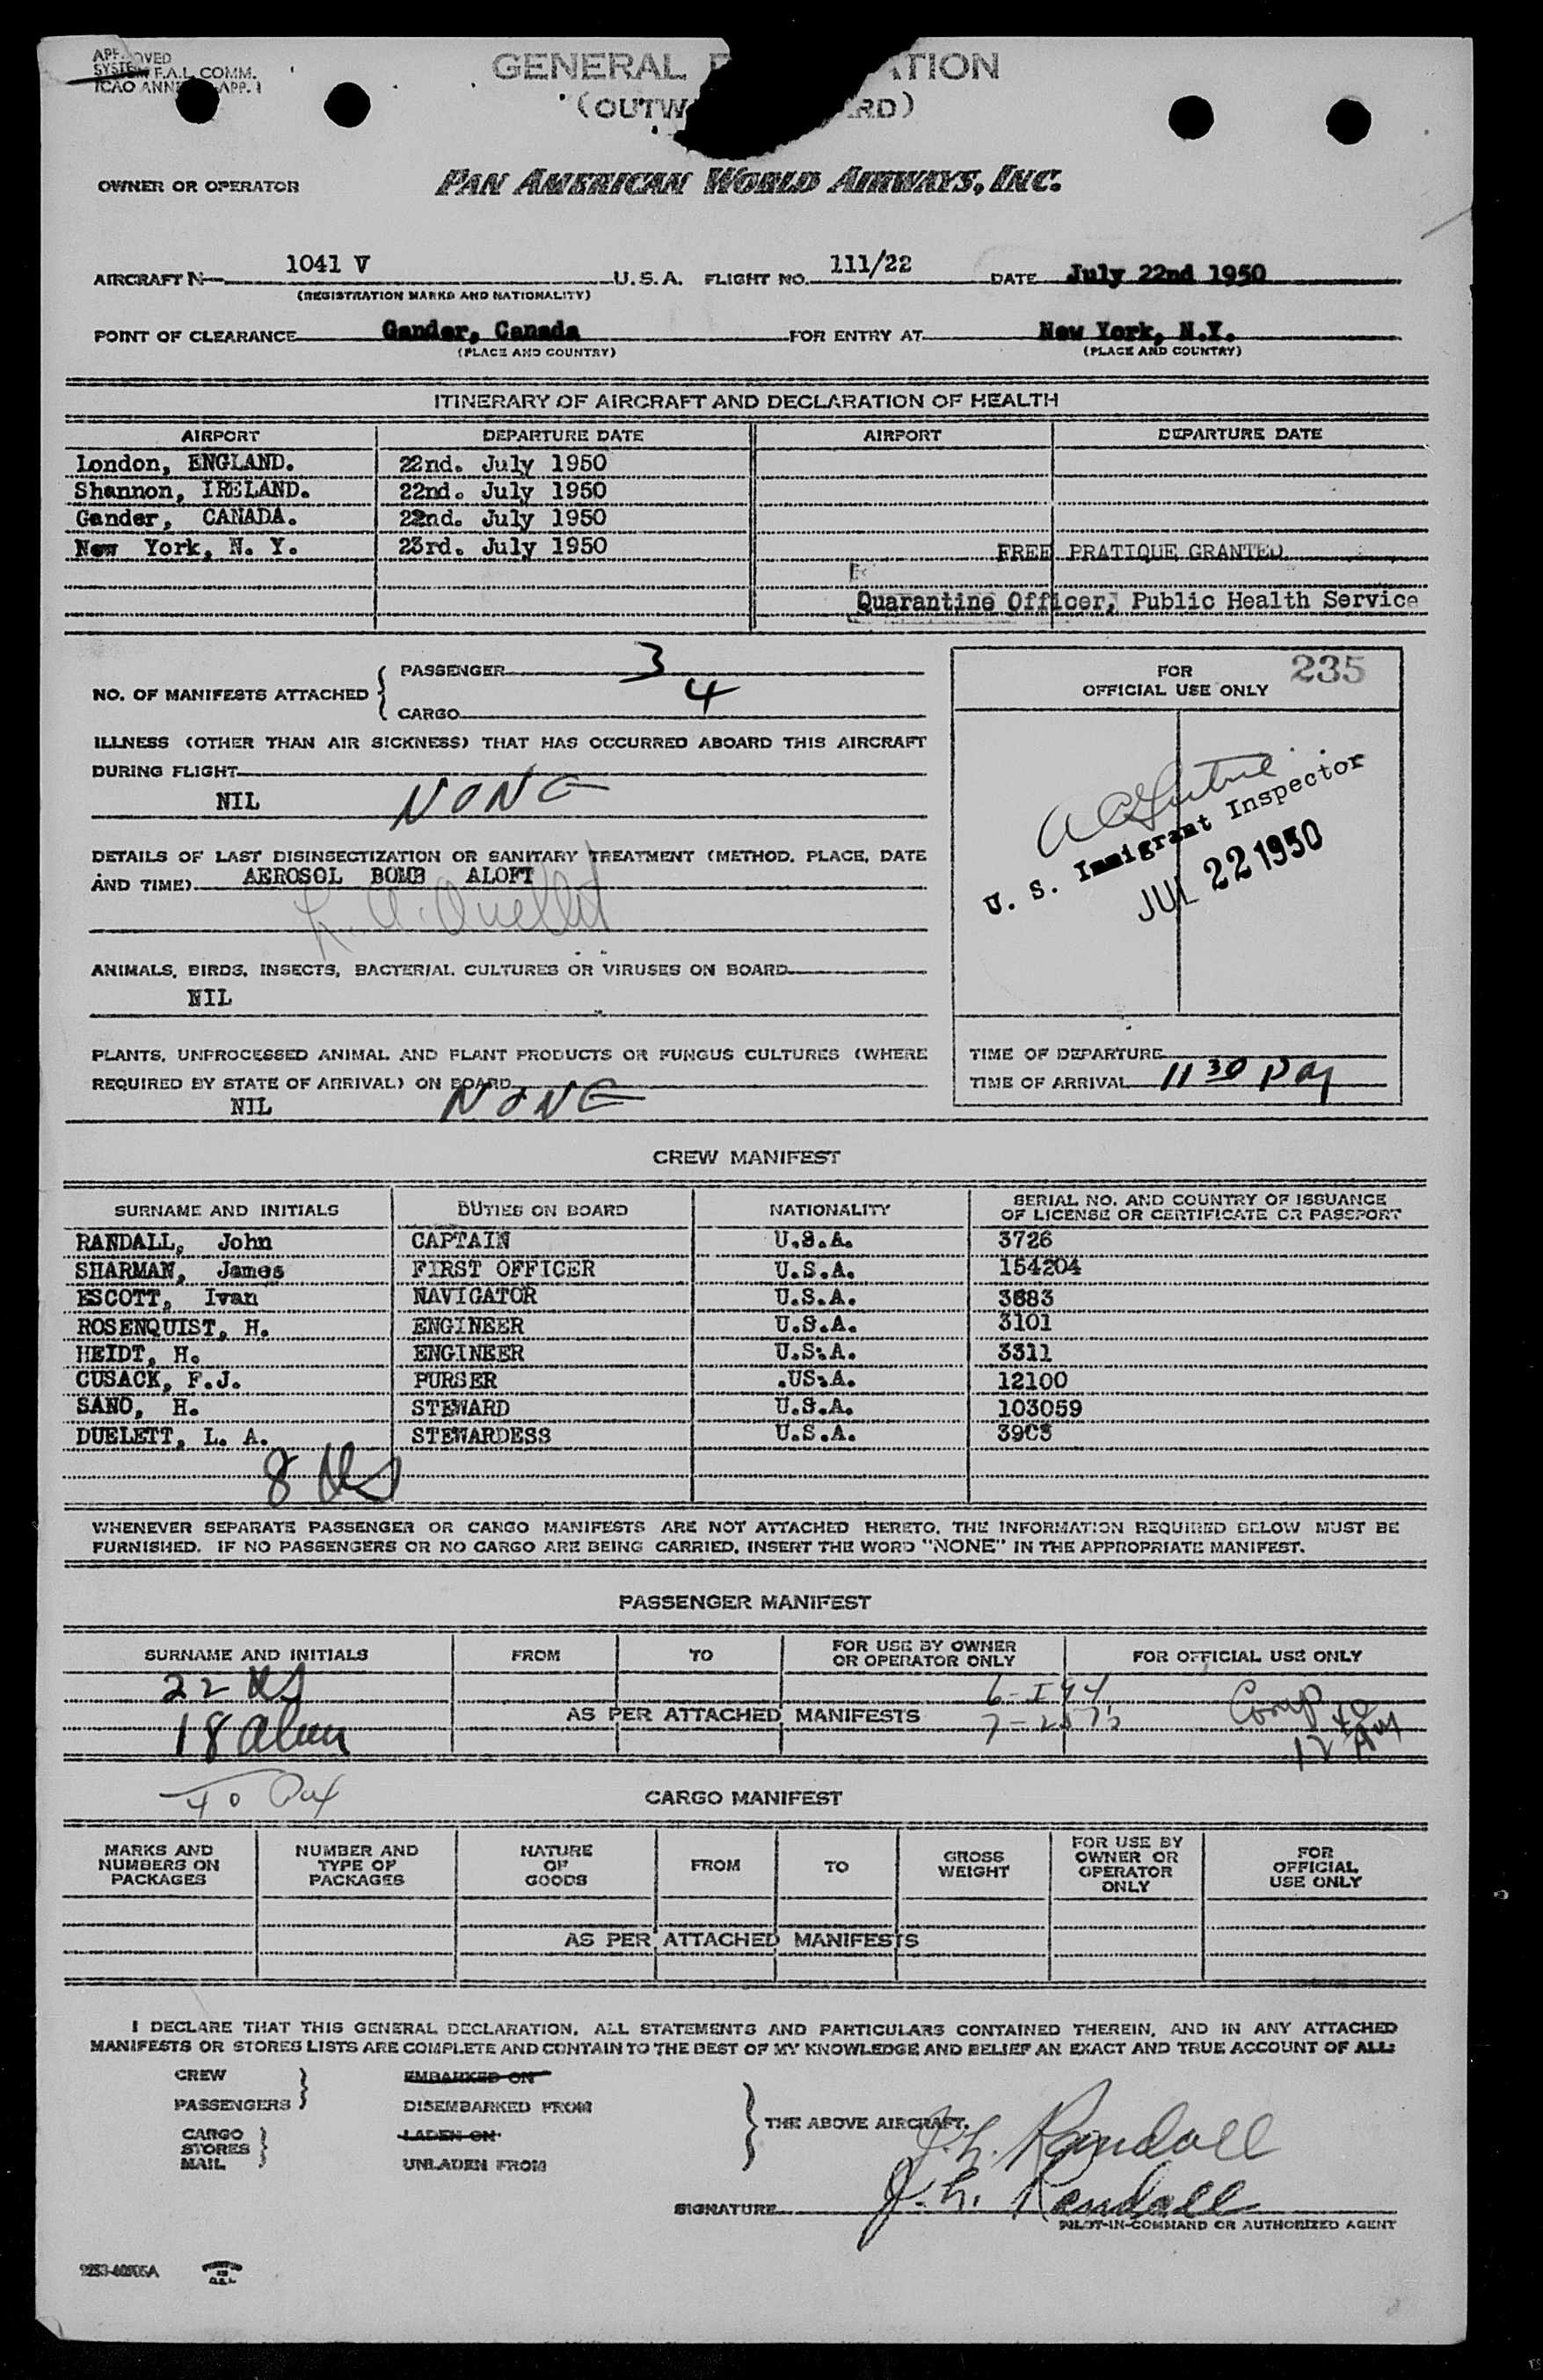 APPROVED
SYSTEM F.A.L. COMM.
ICAO ANNE APP. 1
GENERAL TION
(OUTW RD)
OWNER OR OPERATOR PAN AMERICAN WORLD AIRWAYS, INC.
AIRCRAFT N 1041 V U.S.A. FLIGHT NO. 111/22 DATE July 22nd 1950
(REGISTRATION MARKS AND NATIONALITY)
POINT OF CLEARANCE Gander, Canada FOR ENTRY AT New York, N.Y.
(PLACE AND COUNTRY) (PLACE AND COUNTRY)
ITINERARY OF AIRCRAFT AND DECLARATION OF HEALTH
AIRPORT DEPARTURE DATE AIRPORT DEPARTURE DATE
London, ENGLAND. 22nd. July 1950
Shannon, IRELAND. 22nd. July 1950
Gander, CANADA. 22nd. July 1950
New York, N. Y. 23rd. July 1950 FREE PRATIQUE GRANTED
Quarantine Officer, Public Health Service
NO. OF MANIFESTS ATTACHED
PASSENGER 3
CARGO 4
FOR OFFICIAL USE ONLY 235
ILLNESS (OTHER THAN AIR SICKNESS) THAT HAS OCCURRED ABOARD THIS AIRCRAFT
DURING FLIGHT
NIL NONE
U. S. Immigrant Inspector
JUL 22 1950
DETAILS OF LAST DISINSECTIZATION OR SANITARY TREATMENT (METHOD, PLACE, DATE
AND TIME) AEROSOL BOMB ALOFT
L. A. Ouellet
ANIMALS, BIRDS, INSECTS, BACTERIAL CULTURES OR VIRUSES ON BOARD
NIL
PLANTS, UNPROCESSED ANIMAL AND PLANT PRODUCTS OR FUNGUS CULTURES (WHERE
REQUIRED BY STATE OF ARRIVAL) ON BOARD
NIL NONE
TIME OF DEPARTURE
TIME OF ARRIVAL 11 30 pm
CREW MANIFEST
SURNAME AND INITIALS DUTIES ON BOARD NATIONALITY SERIAL NO. AND COUNTRY OF ISSUANCE
OF LICENSE OR CERTIFICATE OR PASSPORT
RANDALL, John CAPTAIN U.S.A. 3726
SHARMAN, James FIRST OFFICER U.S.A. 154204
ESCOTT, Ivan NAVIGATOR U.S.A. 3683
ROSENQUIST, H. ENGINEER U.S.A. 3101
HEIDT, H. ENGINEER U.S.A. 3311
CUSACK, F.J. PURSER .US.A. 12100
SANO, H. STEWARD U.S.A. 103059
DUELETT, L. A. STEWARDESS U.S.A. 3903
8 US
WHENEVER SEPARATE PASSENGER OR CARGO MANIFESTS ARE NOT ATTACHED HERETO, THE INFORMATION REQUIRED BELOW MUST BE
FURNISHED. IF NO PASSENGERS OR NO CARGO ARE BEING CARRIED, INSERT THE WORD "NONE" IN THE APPROPRIATE MANIFEST.
PASSENGER MANIFEST
SURNAME AND INITIALS FROM TO FOR USE BY OWNER
OR OPERATOR ONLY FOR OFFICIAL USE ONLY
22 US 6-I94
AS PER ATTACHED MANIFESTS Comp
18 alien 12 AM
40
CARGO MANIFEST
MARKS AND
NUMBERS ON
PACKAGES
NUMBER AND
TYPE OF
PACKAGES
NATURE
OF
GOODS
FROM
TO
GROSS
WEIGHT
FOR USE BY
OWNER OR
OPERATOR
ONLY
FOR
OFFICIAL
USE ONLY
AS PER ATTACHED MANIFESTS
I DECLARE THAT THIS GENERAL DECLARATION, ALL STATEMENTS AND PARTICULARS CONTAINED THEREIN, AND IN ANY ATTACHED
MANIFESTS OR STORES LISTS ARE COMPLETE AND CONTAIN TO THE BEST OF MY KNOWLEDGE AND BELIEF AN EXACT AND TRUE ACCOUNT OF ALL:
CREW EMBARKED ON
PASSENGERS DISEMBARKED FROM
THE ABOVE AIRCRAFT.
CARGO LADEN ON
STORES
MAIL UNLADEN FROM
J. H. Randall
SIGNATURE J. H. Randall
PILOT-IN-COMMAND OR AUTHORIZED AGENT